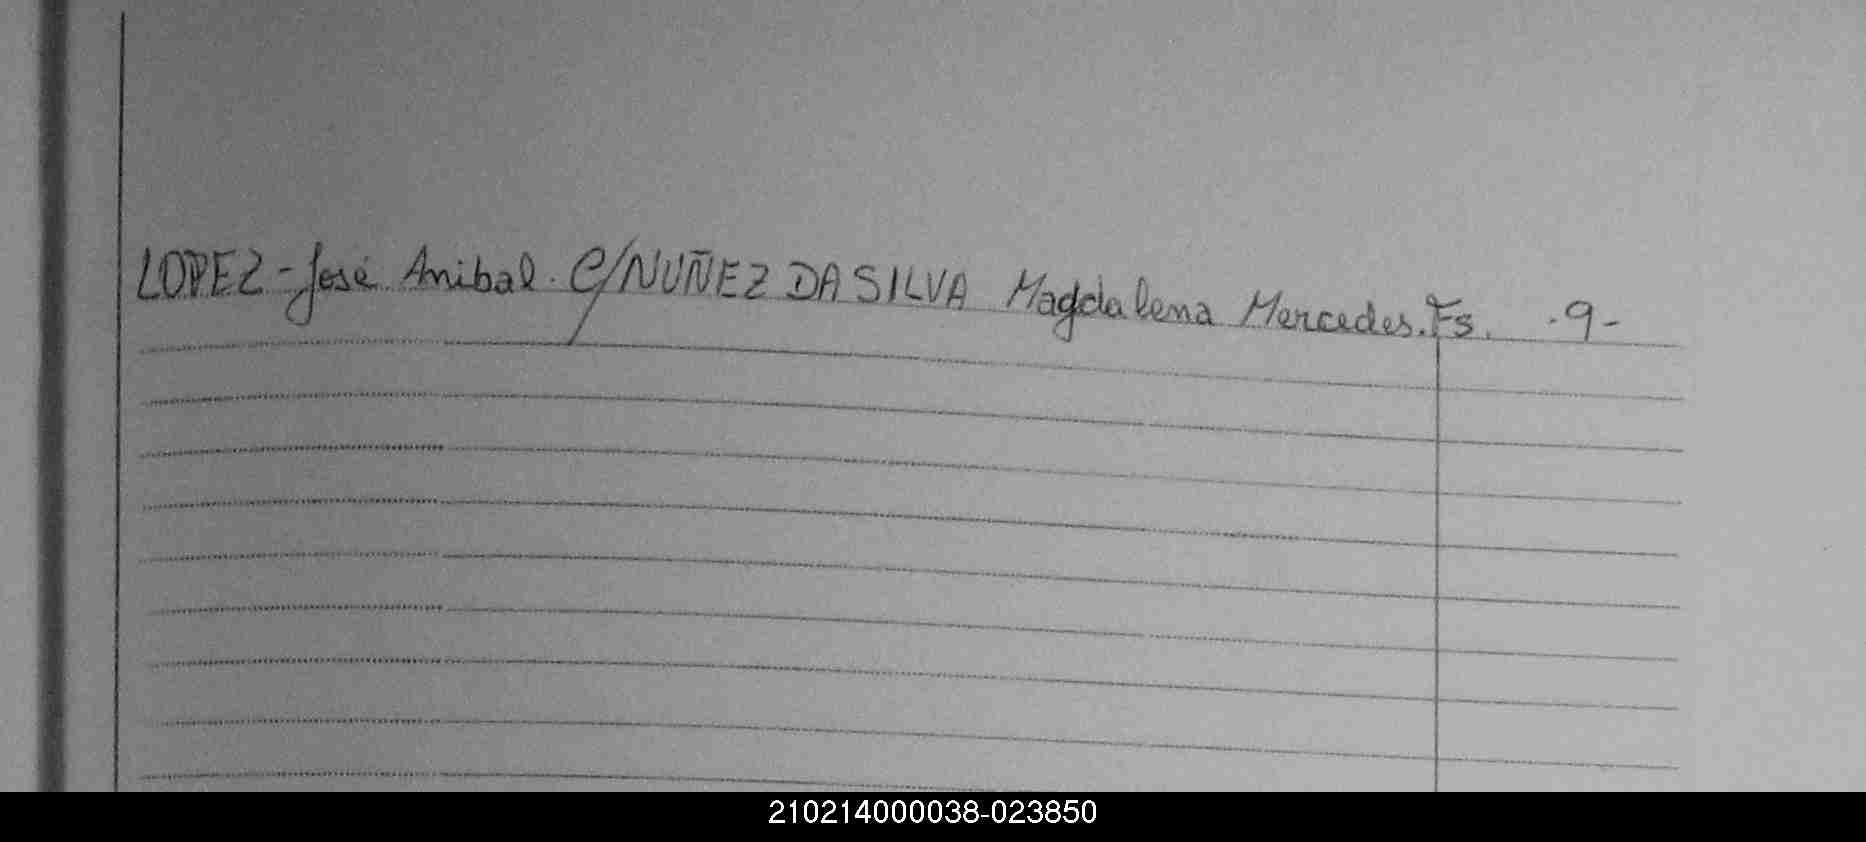 LOPEZ-José Anibal. C/NUÑEZ DA SILVA Magdalena Mercedes. Fs. .9-
210214000038-023850